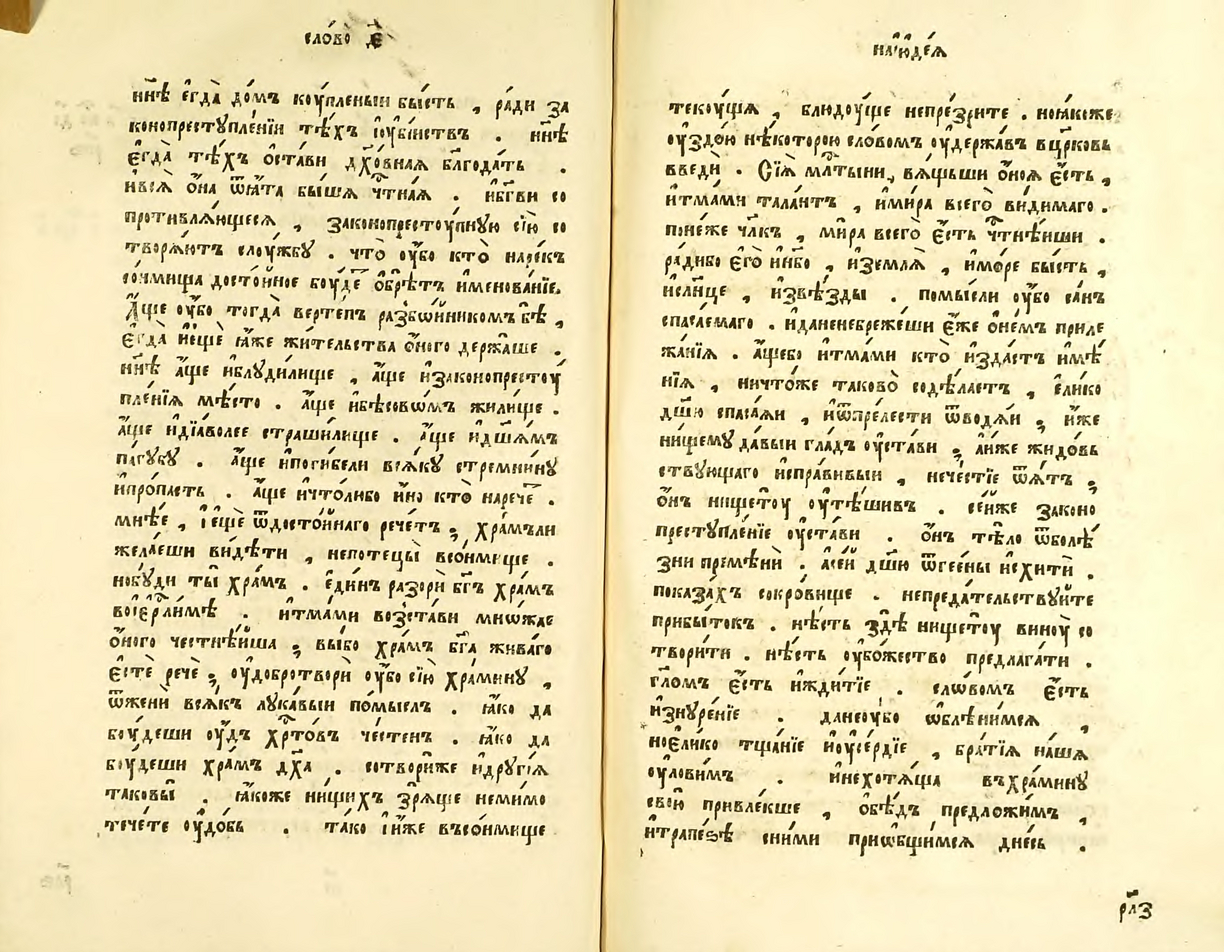 сло́во є҃
нн҃ѣ єгда̀ до́мъ коꙋ́пленыи бы́сть , ра́ди за
конопрестꙋпле́нїи тѣ́хъ ꙋ҆бі́нствъ . нн҃ѣ
єгда̀ тѣ́хъ ѡста́ви дх҃о́внаѧ благода́ть .
ивсѧ̑ ѻна̀ ѿѧ́та бы́шѧ чⷭ҇тна́ѧ . ибг҃ви со
противлѧ́ющесѧ , законопрестоу́пнꙋю сїю̀ со
творѧ́ютъ слоу́жбꙋ . что̀ оу҆̀бо кто̀ наре́къ
со́нмища досто́йное боу́де ѻбрѣ́тъ именова́нїе.
А҆́ще оу҆̀бо тогда̀ верте́пъ разбѡ́йникомъ бѣ̀ ,
єгда̀ и҆ещѐ ꙗ҆́же жи́тельства ѻ҆́ного держа́ше .
нн҃ѣ а҆́ще иблꙋди́лище , а҆́ще изаконопрестоу
пле́нїѧ мѣ́сто . а҆́ще ибѣсовѡ́мъ жили́ще .
а҆́ще идїа́волее страши́лище . а҆́ще идш҃ѧ́мъ
па́гꙋбꙋ . а҆́ще ипоги́бели всѧ́кꙋ стремни́нꙋ
ипро́пасть . а҆́ще ичто́либо и҆́но кто̀ нарече́ .
мнѣ́е , і҆ещѐ ѿдосто́йнаго рече́тъ ; хра́мъли
жела́еши ви́дѣти , непотецы̀ всо́нмище .
нобꙋ́ди ты̀ хра́мъ . єди́нъ разорѝ бг҃ъ хра́мъ
воіерⷭ҇ли́мѣ . и҆тма́ми возста́ви мнѡ́жае
ѻ҆́ного честнѣ́йша ; вы́бо хра́мъ бг҃а жива́го
єстѐ речѐ ; оу҆добротворѝ оу҆̀бо сїю̀ хра́минꙋ ,
ѿженѝ всѧ́къ лꙋка́выи по́мыслъ . ꙗ҆́ко да
боу́деши оу҆́дъ хрⷭ҇то́въ че́стенъ . ꙗ҆́ко да
боу́деши хра́мъ дх҃а . сотвори́же идрꙋгі́ѧ
таковы̀ . ꙗ҆́коже ни́щихъ зрѧ́ще неми́мо
тече́те оу҆до́бь . та́ко і҆и҆́же въсо́нмище
наі҆ꙋде́ѧ
текоу́щїѧ , блюдоу́ще непре́зрите . ноꙗ҆́коже
оу҆здо́ю нѣ́которою сло́вомъ оу҆держа́въ вцр҃ковь
введѝ . Сїѧ̀ млⷭ҇тыни , вѧ́щьши ѻ҆́ноѧ є҆́сть ,
и҆тма́ми тала́нтъ , и҆ми́ра всего̀ ви́димаго .
поне́же чл҃къ , ми́ра всего̀ є҆́сть чⷭ҇тнѣ́иши .
ра́дибо є҆го̀ и҆нб҃о , и҆землѧ̀ , и҆мо́ре бы́сть ,
исл҃нце , и҆звѣ́зды . помы́сли оу҆̀бо са́нъ
спаса́емаго . и҆данебреже́ши є҆́же ѻне́мъ приле
жа́нїѧ . а҆́щебо и҆тма́ми кто̀ и҆зда́стъ имѣ́
нїѧ , ничто́же таково̀ содѣ́лаетъ , є҆ли́ко
дш҃ю спаса́ѧи , и҆ѿпре́лести ѿводѧ́и ; и҆́же
ни́щемꙋ да́выи гла́дъ оу҆ста́ви ; а҆и҆́же жидо́вь
ствꙋющаго испра́вивыи , нече́стїе ѿѧ́тъ ;
ѻ҆́нъ нищетоу̀ оу҆тѣ́шивъ . се́иже законо
престꙋпле́нїе оу҆ста́ви . ѻ҆́нъ тѣ́ло ѿболѣ́
зни премѣнѝ . а҆се́й дш҃ю ѿгее́ны исхитѝ .
показа́хъ сокро́вище . непреда́тельствꙋ́ите
прибы́токъ . нѣ́сть здѣ̀ нищетоу̀ виноу̀ со
твори́ти . нѣ́сть оу҆бо́жество предлага́ти .
гл҃омъ є҆́сть ижди́тїе . слѡ́вомъ є҆́сть
и҆знꙋре́нїе . да́неоу҆́бо ѡблѣни́мсѧ ,
ноє҆ли́ко тща́нїе иоу҆се́рдїе , бра́тїѧ на́шѧ
оу҆лови́мъ . и҆нехотѧ́ща въхра́минꙋ
свою̀ привле́кше , ѻбѣ́дъ предло́жимъ ,
и҆трапе́зѣ сни́ми приѡбщи́мсѧ дне́сь .
рл҃з